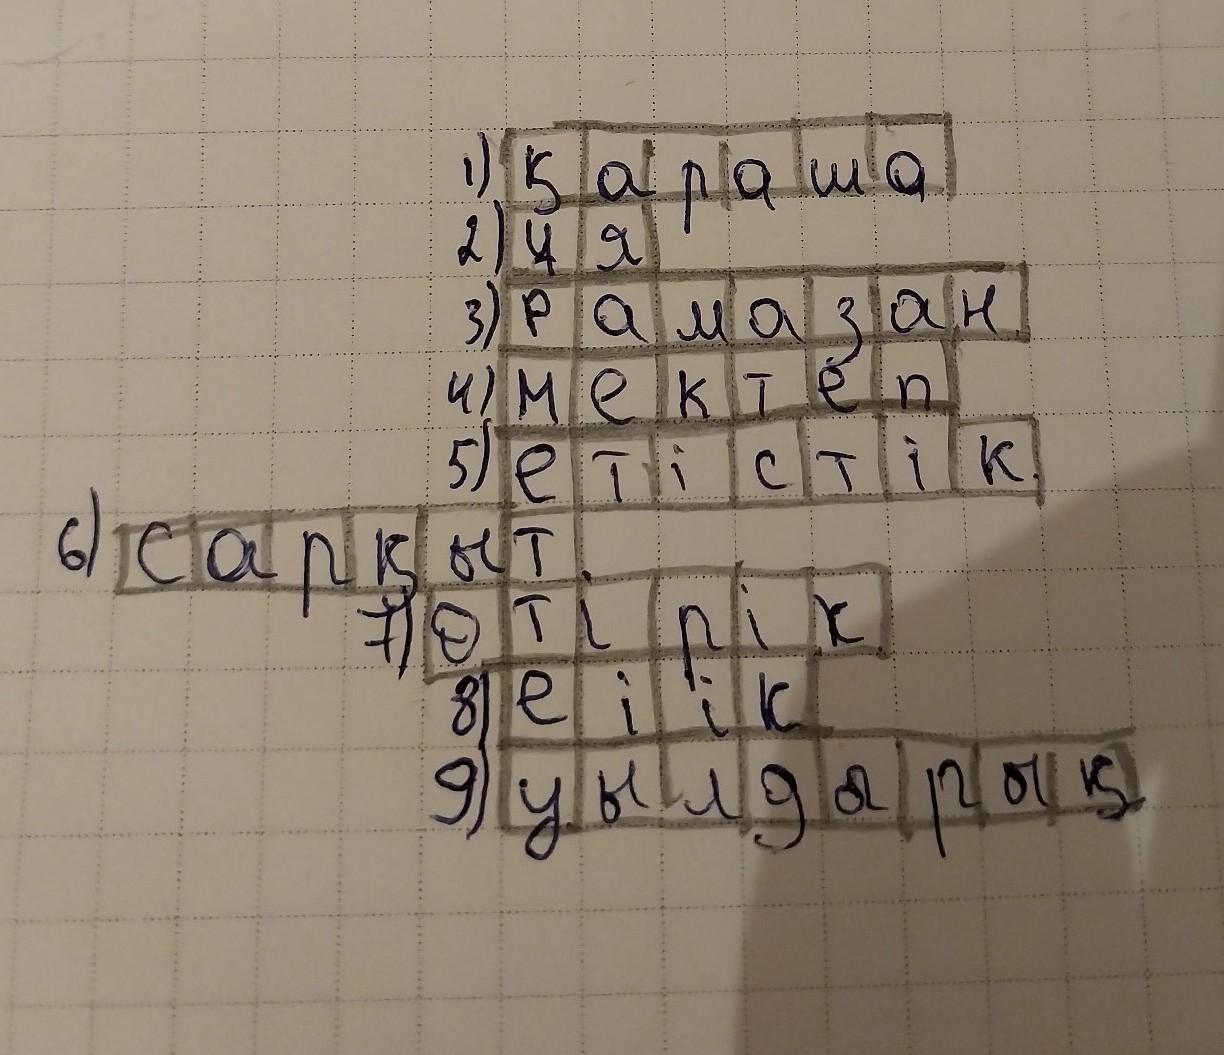 1) қараша
2) ұя
3) рамазан
4) мектеп
5) етістік
6) сарқыт
7) өтірік
8) еіік
9) уылдырық